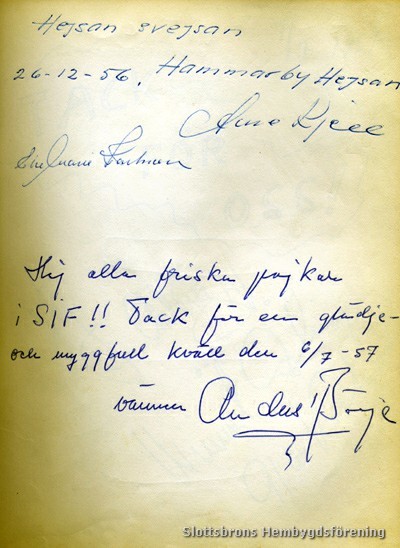 Hejsan svejsan
26-12-56, Hammarby Hejsan
Kjell
Hej alla friska pojkar
i SIF!! Tack för en glädje-
och myggfull kväll den 6/7-57
vänner Börje
Slottsbrons Hembygdsförening